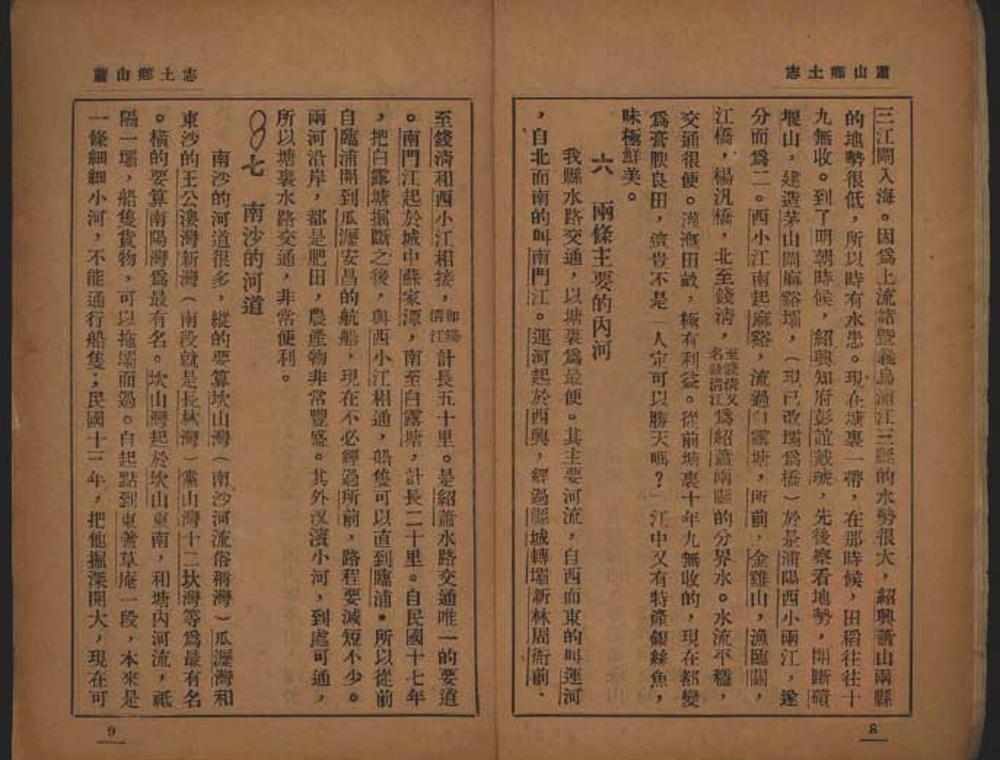 蕭山鄉土志
三江閘入海。因爲上流諸暨義烏浦江三縣的水勢很大，紹興蕭山兩縣
的地勢很低，所以時有水患。現在塘裏一帶，在那時候，田稻往往十
九無收。到了明朝時候，紹興知府彭誼戴琥，先後察看地勢，開斷磧
堰山，建造茅山閘麻谿壩，（現已改壩爲橋）於是浦陽西小兩江，遂
分而爲二。西小江南起麻谿，流過白露塘，所前，金雞山，漁臨關，
江橋，楊汛橋，北至錢清，至錢清又名錢清江爲紹蕭兩縣的分界水。水流平穩，
交通很便。灌漑田畝，極有利益。從前塘裏十年九無收的，現在都變
爲膏腴良田，這豈不是「人定可以勝天嗎？」江中又有特產銀絲魚，
味極鮮美。
六　兩條主要的內河
我縣水路交通，以塘裏爲最便。其主要河流，自西而東的叫運河
，自北而南的叫南門江。運河起於西興，經過縣城轉壩新林周衙前，
8
蕭山鄉土志
至錢清和西小江相接，卽錢清江計長五十里。是紹蕭水路交通唯一的要道
。南門江起於城中蘇家潭，南至白露塘，計長二十里。自民國十七年
，把白露塘掘斷之後，與西小江相通，船隻可以直到臨浦。所以從前
自臨浦開到瓜瀝安昌的航船，現在不必經過所前，路程要減短不少。
兩河沿岸，都是肥田，農產物非常豐盛。其外汊濱小河，到處可通，
所以塘裏水路交通，非常便利。
七　南沙的河道
南沙的河道很多，縱的要算坎山灣（南沙河流俗稱灣）瓜瀝灣和
東沙的王公溇灣新灣（南段就是長林灣）黨山灣十二埭灣等爲最有名
。橫的要算南陽灣爲最有名。坎山灣起於坎山東南，和塘內河流，祗
隔一壩，船隻貨物，可以拖壩而過。自起點到東著草庵一段，本來是
一條細細小河，不能通行船隻；民國十三年，把他掘深開大，現在可
9